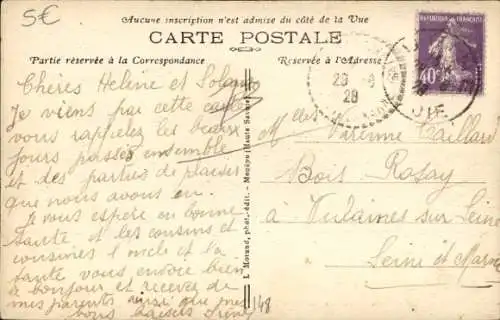 5€
Aucune inscription n'est admise du côté de la Vue
CARTE POSTALE
Partie réservée à la Correspondance
Réservée à l'Adresse
REPUBLIQUE FRANÇAISE
40c
28 28
Chères Helène et Solange
Je viens par cette carte
vous rappeler les beaux
jours passés ensemble
et des parties de plaisir
que nous avons eu.
Je vous espère en bonne
santé et les cousins et
cousines l'oncle et la
tante vous envoie bien
le bonjour et recevez de
mes parents ainsi que mes
bons baisers
L. Morand, phot.-édit. - Megève (Haute Savoie)
Melles Vaillard
Bois Rosay
à Vulaines sur Seine
Seine et Marne
148